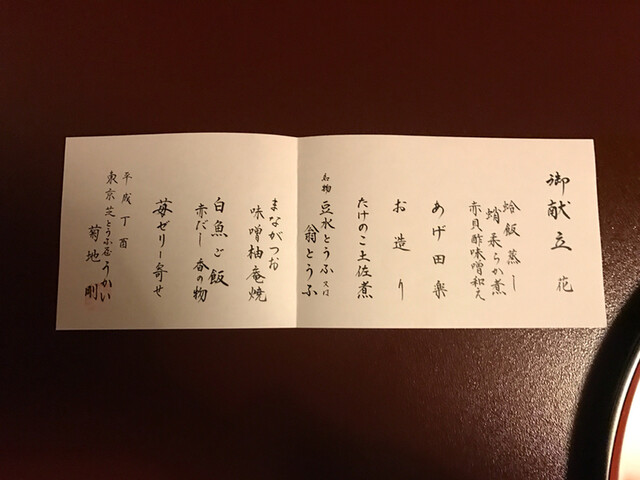 御献立 花
蛤飯蒸し
蛸柔らか煮
赤貝酢味噌和え
あげ田楽
お造り
たけのこ土佐煮
名物 豆水とうふ 又は
翁とうふ
まながつお
味噌柚庵焼
白魚ご飯
赤だし 香の物
苺ゼリー寄せ
平成丁酉
東京芝とうふ屋うかい
菊地 剛